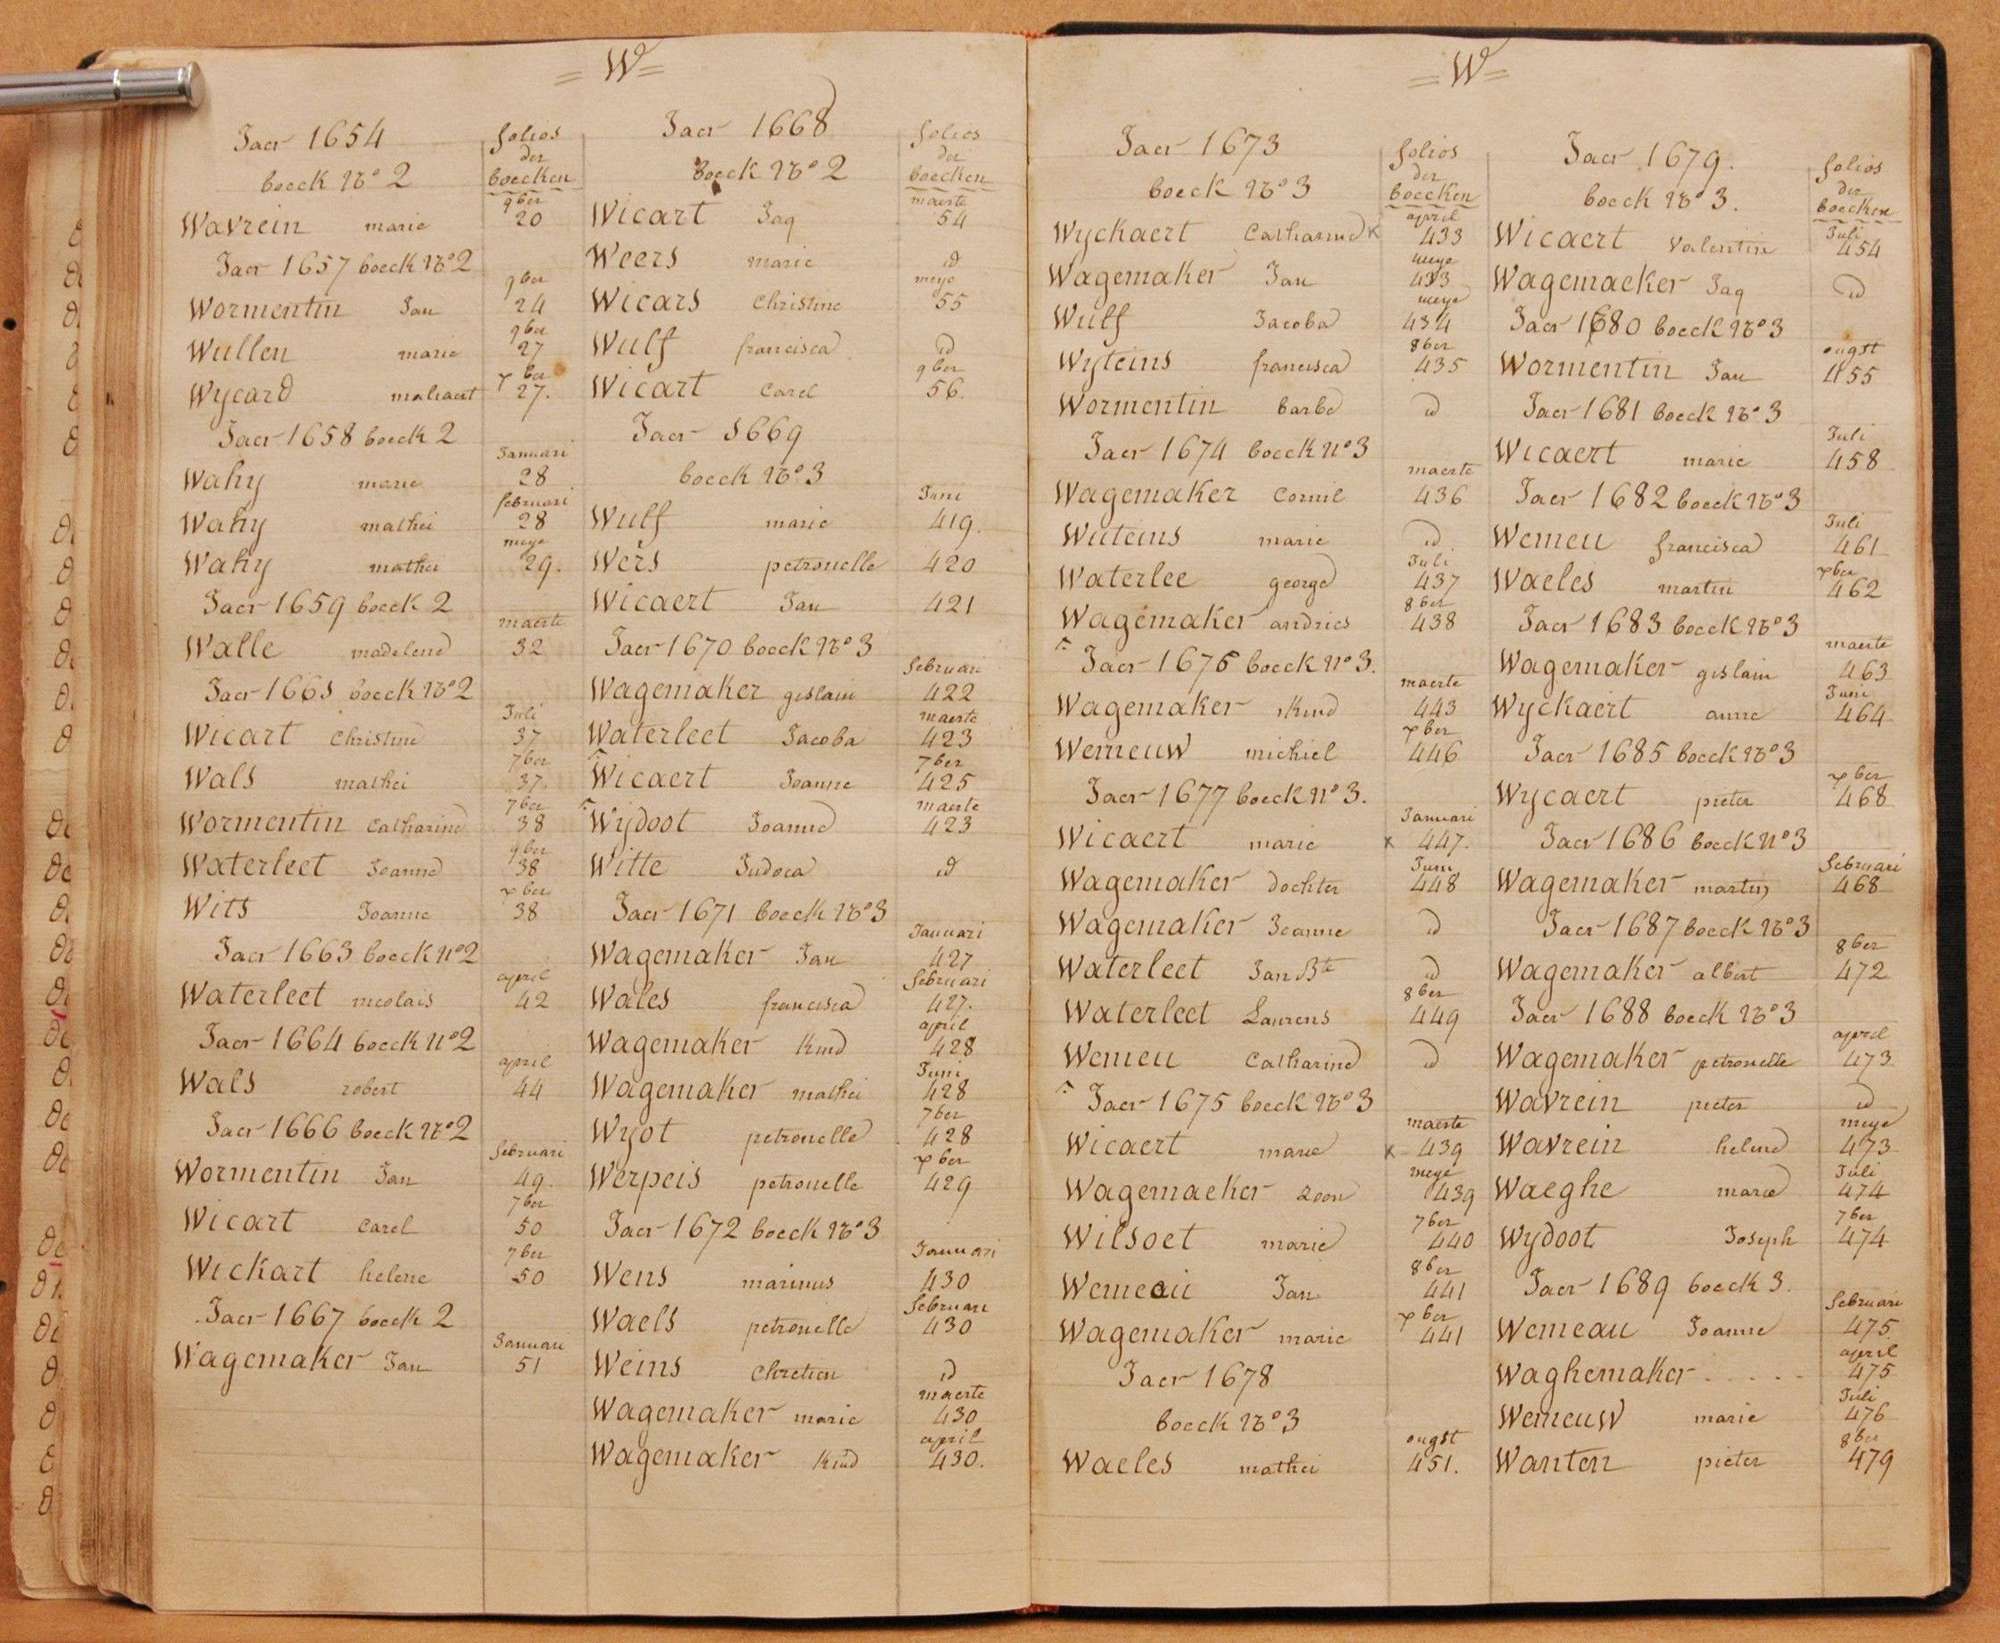 = W =
Jaer 1654 folios der boecken
boeck No 2
Wavrein marie 9ber 20
Jaer 1657 boeck No 2
Wormentin Jan 9ber 24
Wullen marie 9ber 27
Wycard maliaert xber 27.
Jaer 1658 boeck 2
Wahy marie Januari 28
Wahy mathei februari 28
Wahy mathei meye 29.
Jaer 1659 boeck 2
Walle madelene maerte 32
Jaer 1661 boeck No 2
Wicart Christine Juli 37
Wals mathei 7ber 37.
Wormentin Catharine 7ber 38
Waterleet Joanne 9ber 38
Wits Joanne xber 38
Jaer 1663 boeck No 2
Waterleet nicolais april 42
Jaer 1664 boeck No 2
Wals robert april 44
Jaer 1666 boeck No 2
Wormentin Jan februari 49.
Wicart Carel 7ber 50
Wickart helene 7ber 50
Jaer 1667 boeck 2
Wagemaker Jan Januari 51
Jaer 1668 folios der boecken
boeck No 2
Wicart Jaq maerte 54
Weers marie id
Wicars Christine meye 55
Wulf francisca id
Wicart Carel 9ber 56.
Jaer 1669
boeck No 3
Wulf marie Juni 419.
Wers petronelle 420
Wicaert Jan 421
Jaer 1670 boeck No 3
Wagemaker gislain februari 422
Waterleet Jacoba maerte 423
Wicaert Joanne 7ber 425
Wydoot Joanne maerte 423
Witte Judoca id
Jaer 1671 boeck No 3
Wagemaker Jan Januari 427
Wales francisca februari 427.
Wagemaker kind april 428
Wagemaker mathei Juni 428
Wyot petronelle 7ber 428
Werpeis petronelle xber 429
Jaer 1672 boeck No 3
Wens marinus Januari 430
Waels petronelle februari 430
Weins Chretien id
Wagemaker marie maerte 430
Wagemaker kind april 430.
= W =
Jaer 1673 folios der boecken
boeck No 3
Wyckaert Catharine x april 433
Wagemaker Jan meye 433
Wulf Jacoba meye 434
Wyteins francisca 8ber 435
Wormentin barbe id
Jaer 1674 boeck No 3
Wagemaker Cornil maerte 436
Wuteins marie id
Waterlee george Juli 437
Wagemaker andries 8ber 438
Jaer 1676 boeck No 3.
Wagemaker kind maerte 443
Wemeuw michiel xber 446
Jaer 1677 boeck No 3.
Wicaert marie x Januari 447.
Wagemaker dochter Juni 448
Wagemaker Joanne id
Waterleet Jan Bte id
Waterleet Laurens 8ber 449
Wemeu Catharine id
Jaer 1675 boeck No 3
Wicaert marie x maerte 439
Wagemaeker zoon meye 439
Wilsoet marie 7ber 440
Wemeau Jan 8ber 441
Wagemaker marie xber 441
Jaer 1678
boeck No 3
Waeles mathei ougst 451.
Jaer 1679. folios der boecken
boeck No 3.
Wicaert Valentin Juli 454
Wagemaeker Jaq id
Jaer 1680 boeck No 3
Wormentin Jan ougst 455
Jaer 1681 boeck No 3
Wicaert marie Juli 458
Jaer 1682 boeck No 3
Wemeu francisca Juli 461
Waeles martin xber 462
Jaer 1683 boeck No 3
Wagemaker gislain maerte 463
Wyckaert anne Juni 464
Jaer 1685 boeck No 3
Wycaert pieter xber 468
Jaer 1686 boeck No 3
Wagemaker martin februari 468
Jaer 1687 boeck No 3
Wagemaker albert 8ber 472
Jaer 1688 boeck No 3
Wagemaker petronelle april 473
Wavrein pieter id
Wavrein helene meye 473
Waeghe marie Juli 474
Wydoot Joseph 7ber 474
Jaer 1689 boeck 3.
Wemeau Joanne februari 475
Waghemaker . . . . . april 475
Wemeuw marie Juli 476
Wanten pieter 8ber 479